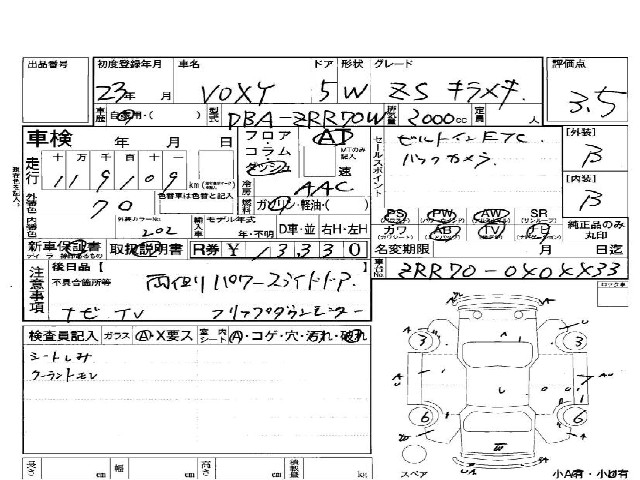 出品番号 初度登録年月 車名 ドア 形状 グレード 評価点
23年 月 VOXY 5 W ZS キラメキ 3.5
車歴 自家用・( ) 型式 DBA-ZRR70W 排気量 2000cc 定員 人
車検 年 月 日 フロア・コラム・ダッシュ AT 速
セールスポイント ビルトインETC.
バックカメラ
[外装] B
[内装] B
走行 十 万 千 百 十 一
119109 km
冷房 AAC
外装色 70 色替車は色替と記入 燃料 ガソリン・軽油・( )
外装カラーNo. 202 輸入車 モデル年式 年・不明 D車・並 右H・左H
PS PW AW SR
カワ AB TV
純正品のみ丸印
新車保証書 取扱説明書 R券 ¥13,330
名変期限 月 日迄
車台No. ZRR70-040XX33
注意事項 後日品 [ ]
不具合箇所等 両側パワースライドドア.
ナビ TV フリップダウンモニター
検査員記入 ガラス A・X要ス 室内シート A・コゲ・穴・汚れ・破れ
シートしみ
クーラントモレ
3 3
6 6
W
スペア 小A有・小U有
長さ cm 幅 cm 高さ cm 積載量 kg